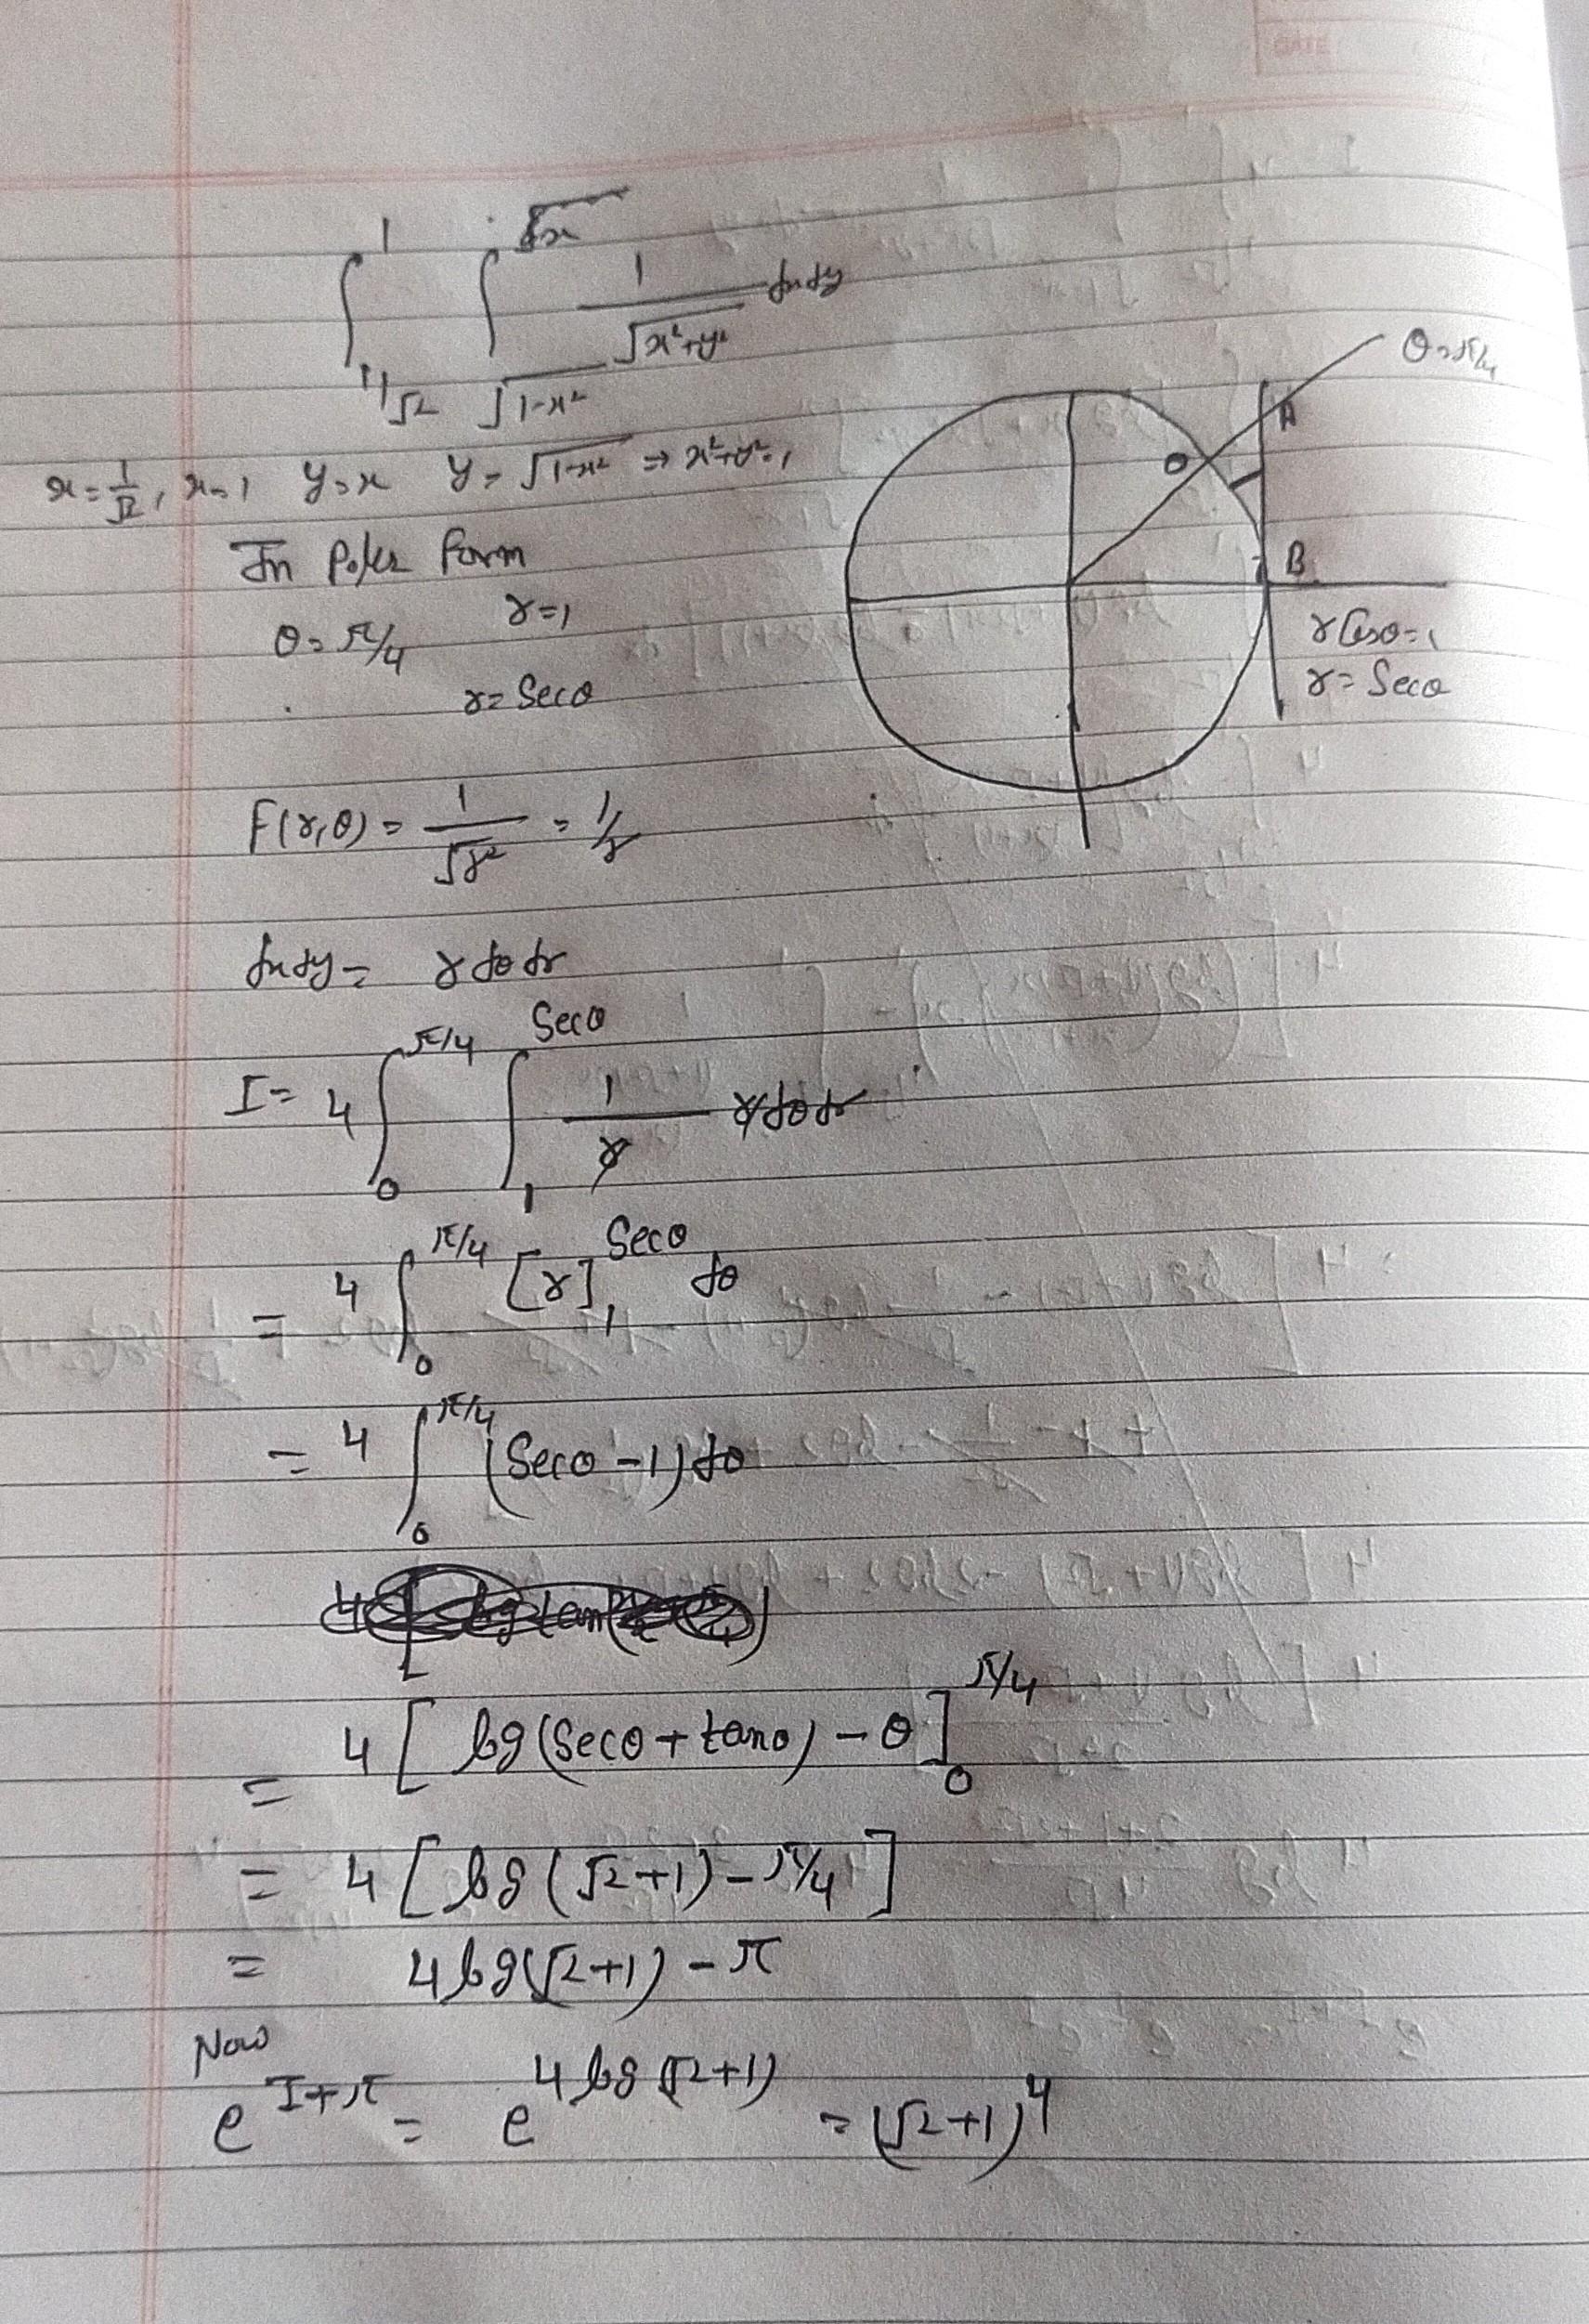 DATE
∫_{1/√2}^{1} ∫_{√1-x²}^{x} 1/√x²+y² dxdy
x = 1/√2, x=1 y=x y=√1-x² ⇒ x²+y²=1
In Polar form
θ = π/4 r=1
r = Secθ
θ=π/4
A
B
r Cosθ=1
r = Secθ
F(r,θ) = 1/√r² = 1/r
dxdy = r dθ dr
I = 4 ∫_0^{π/4} ∫_1^{Secθ} 1/r r dθ dr
= 4 ∫_0^{π/4} [r]_1^{Secθ} dθ
= 4 ∫_0^{π/4} (Secθ - 1) dθ
= 4 [ log(Secθ + tanθ) - θ ]_0^{π/4}
= 4 [ log (√2+1) - π/4 ]
= 4 log(√2+1) - π
Now
e^{I+π} = e^{4 log (√2+1)} = (√2+1)^4